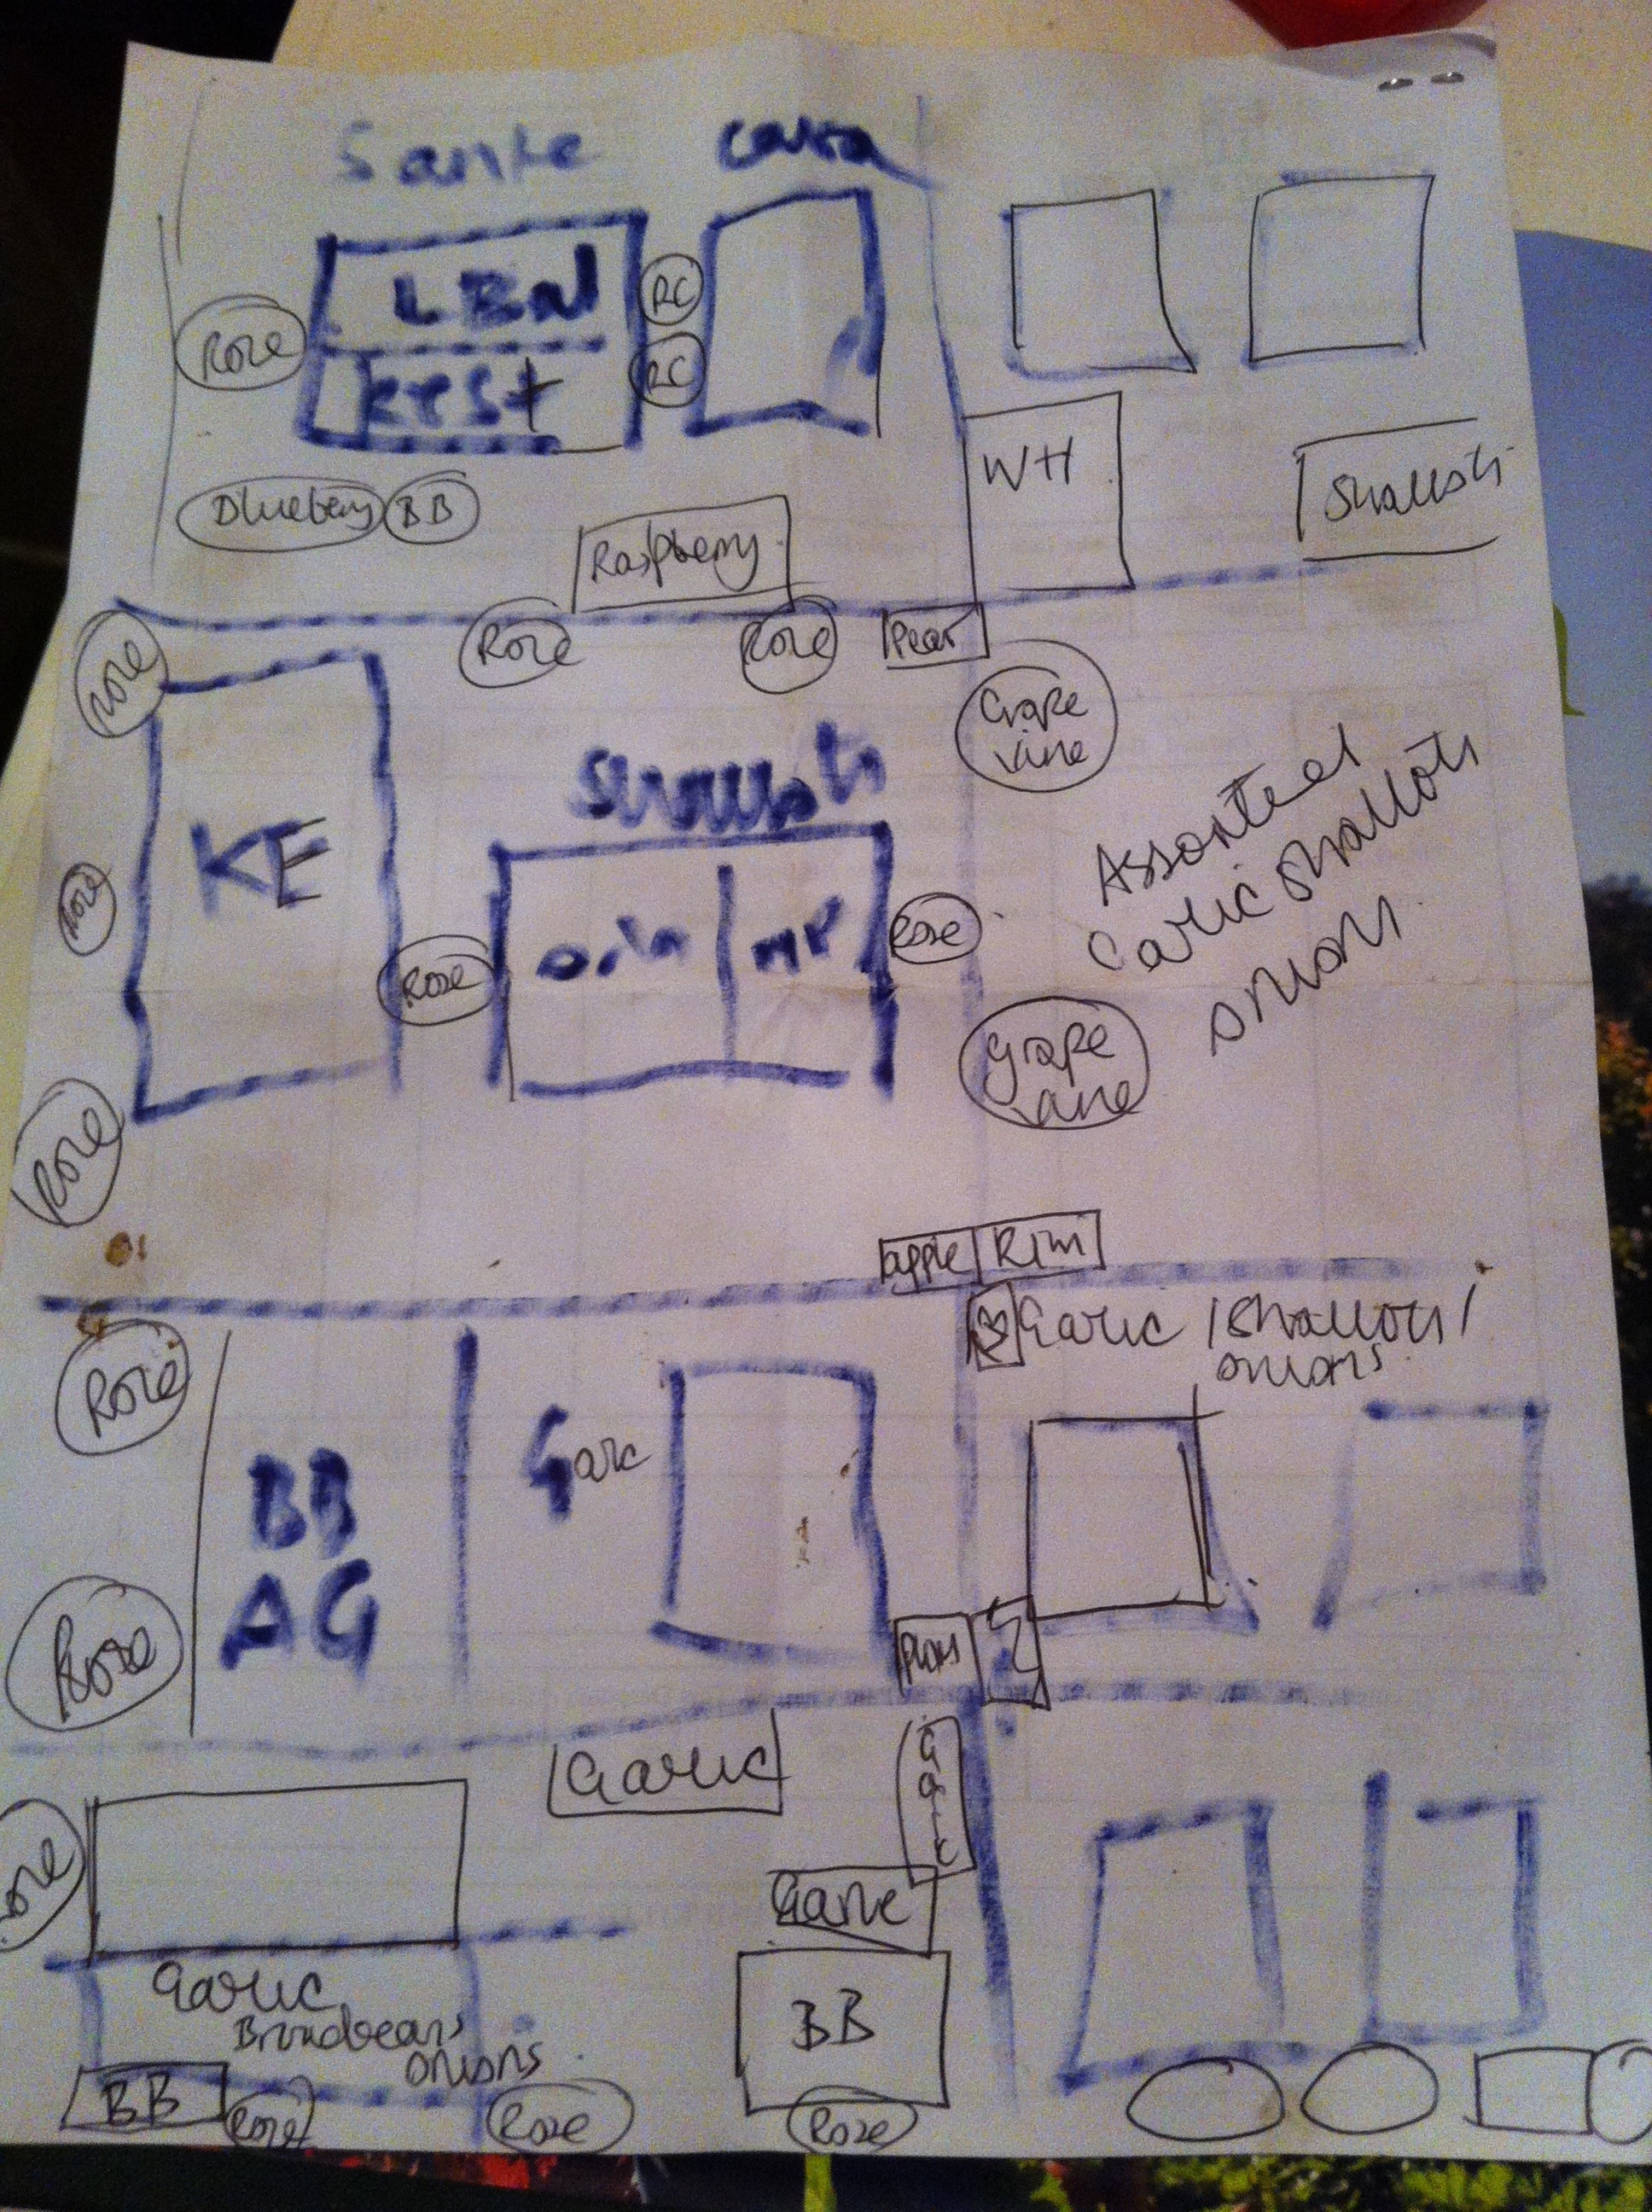 Sante
Casa
LBN
Rest
Rose
RC
RC
Blueberry
BB
Raspberry
WH
Shallots
Rose
Rose
Rose
Pear
Grape
vine
KE
Shallots
Rose
Rose
Rose
Assorted
Garlic shallots
onions
Grape
vine
Rose
apple
Garlic / Shallots /
onions
Rose
BB
AG
Garlic
Rose
Plums
Garlic
Garlic
Rose
Garlic
BB
Garlic
Broadbeans
onions
BB
Rose
Rose
Rose